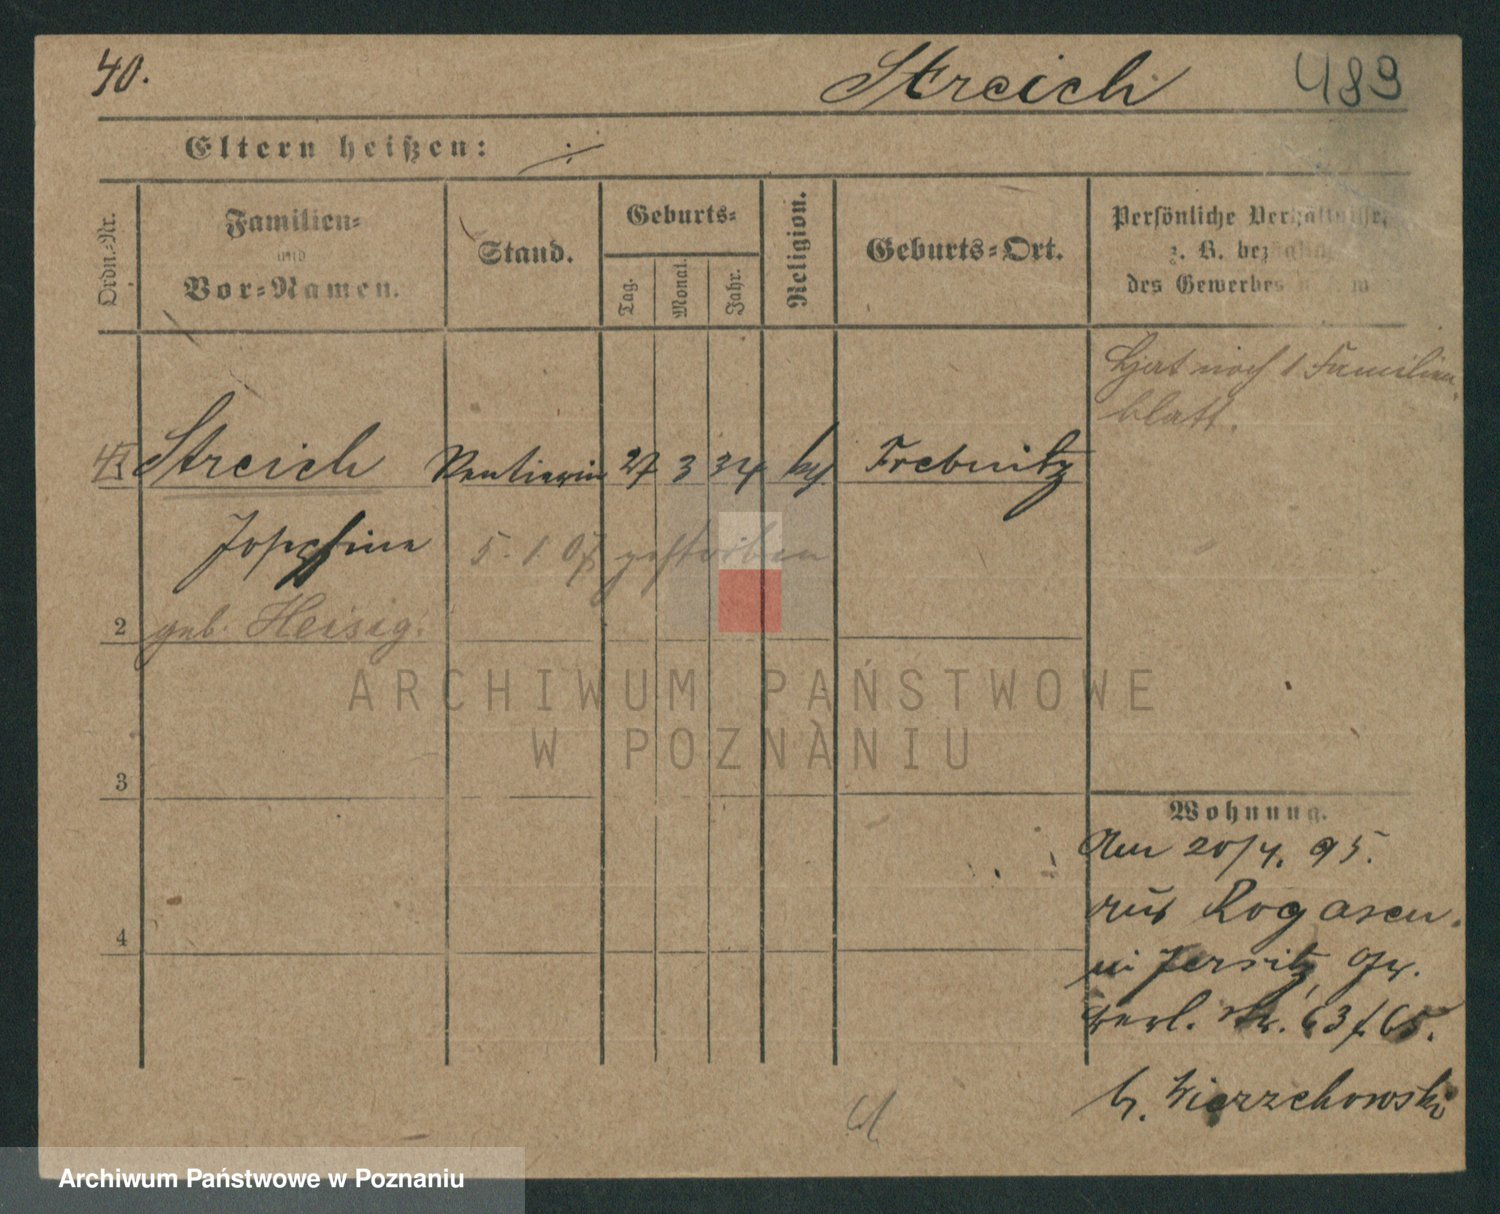 40. Streich 489
Eltern heißen: ./.
Ordn.-Nr.
Familien-
und
Vor-Namen.
Stand.
Geburts-
Tag.
Monat.
Jahr.
Religion.
Geburts-Ort.
Persönliche Verhältnisse,
z. B. bezüglich
des Gewerbes
noch 1 Familien
blatt.
Streich Rentierin 27 3 34 Trebnitz
Josephine 5. 1. 07 gestorben
2 geb. Heisig.
3
4
Wohnung.
Am 20/4. 95.
aus Rogasen.
in Jersitz, Gr.
Berl. Str. 63/65.
b. Wierzchowski
ARCHIWUM PAŃSTWOWE
W POZNANIU
Archiwum Państwowe w Poznaniu